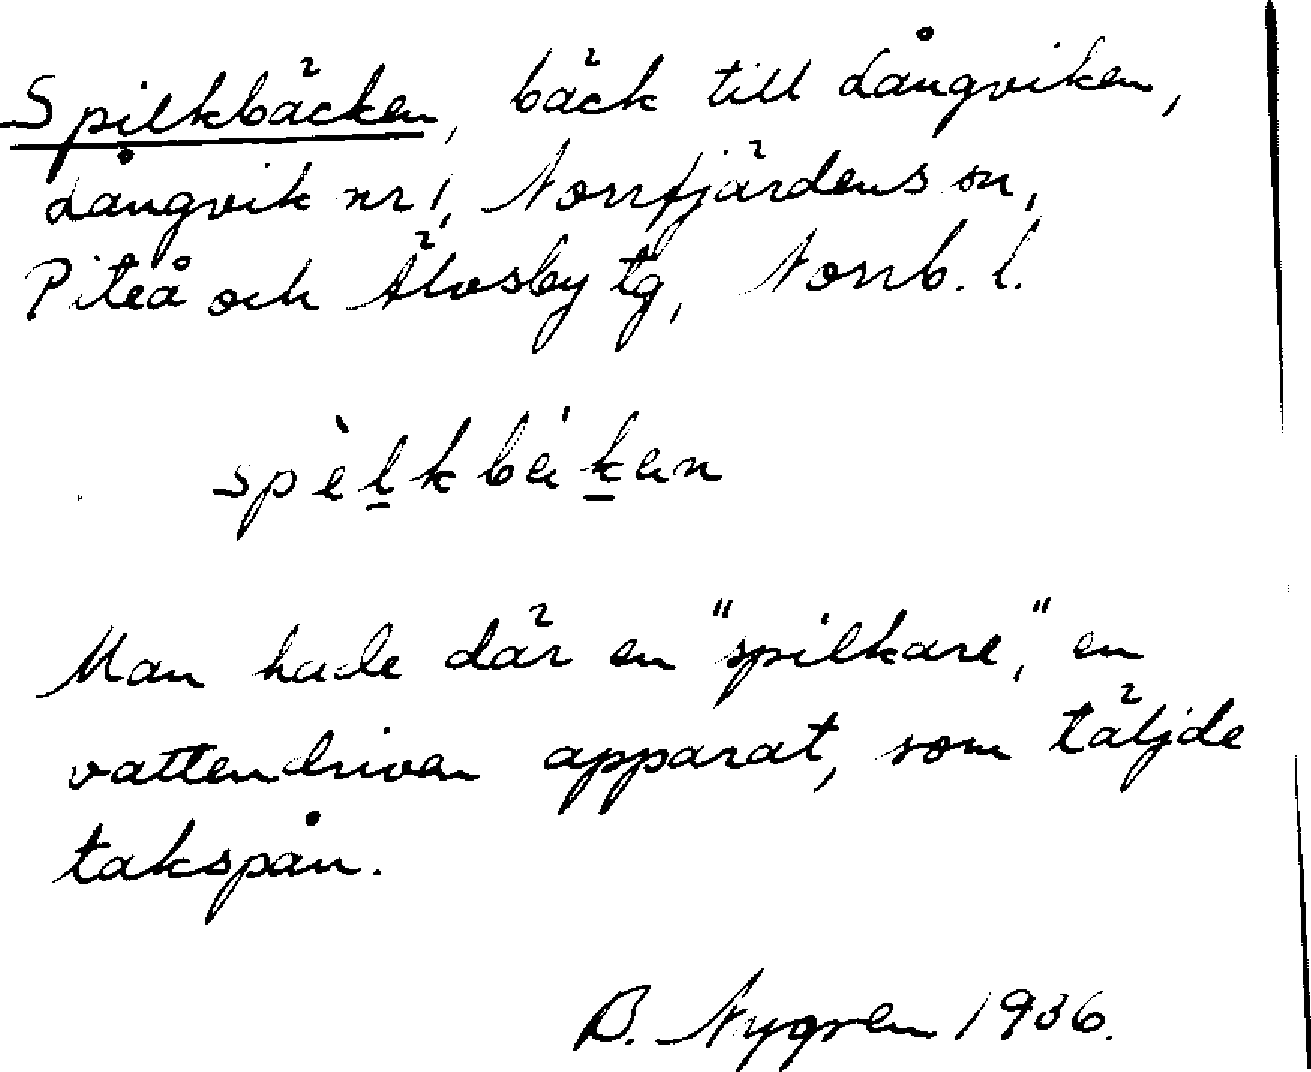 Spilkbäcken, bäck till Långviken,
Långvik nr 1, Norrfjärdens sn,
Piteå och Älvsby tg, Norrb. l.
spèlkbéken
Man hade där en "spilkare," en
vattendriven apparat, som täljde
takspån.
B. Nygren 1936.